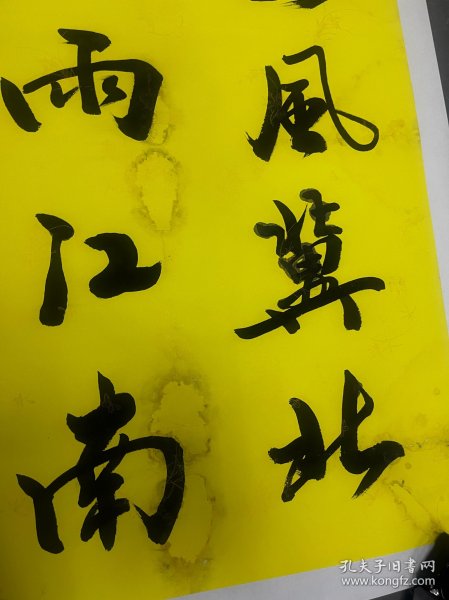 風冀北
雨江南
孔夫子旧书网
www.kongfz.com